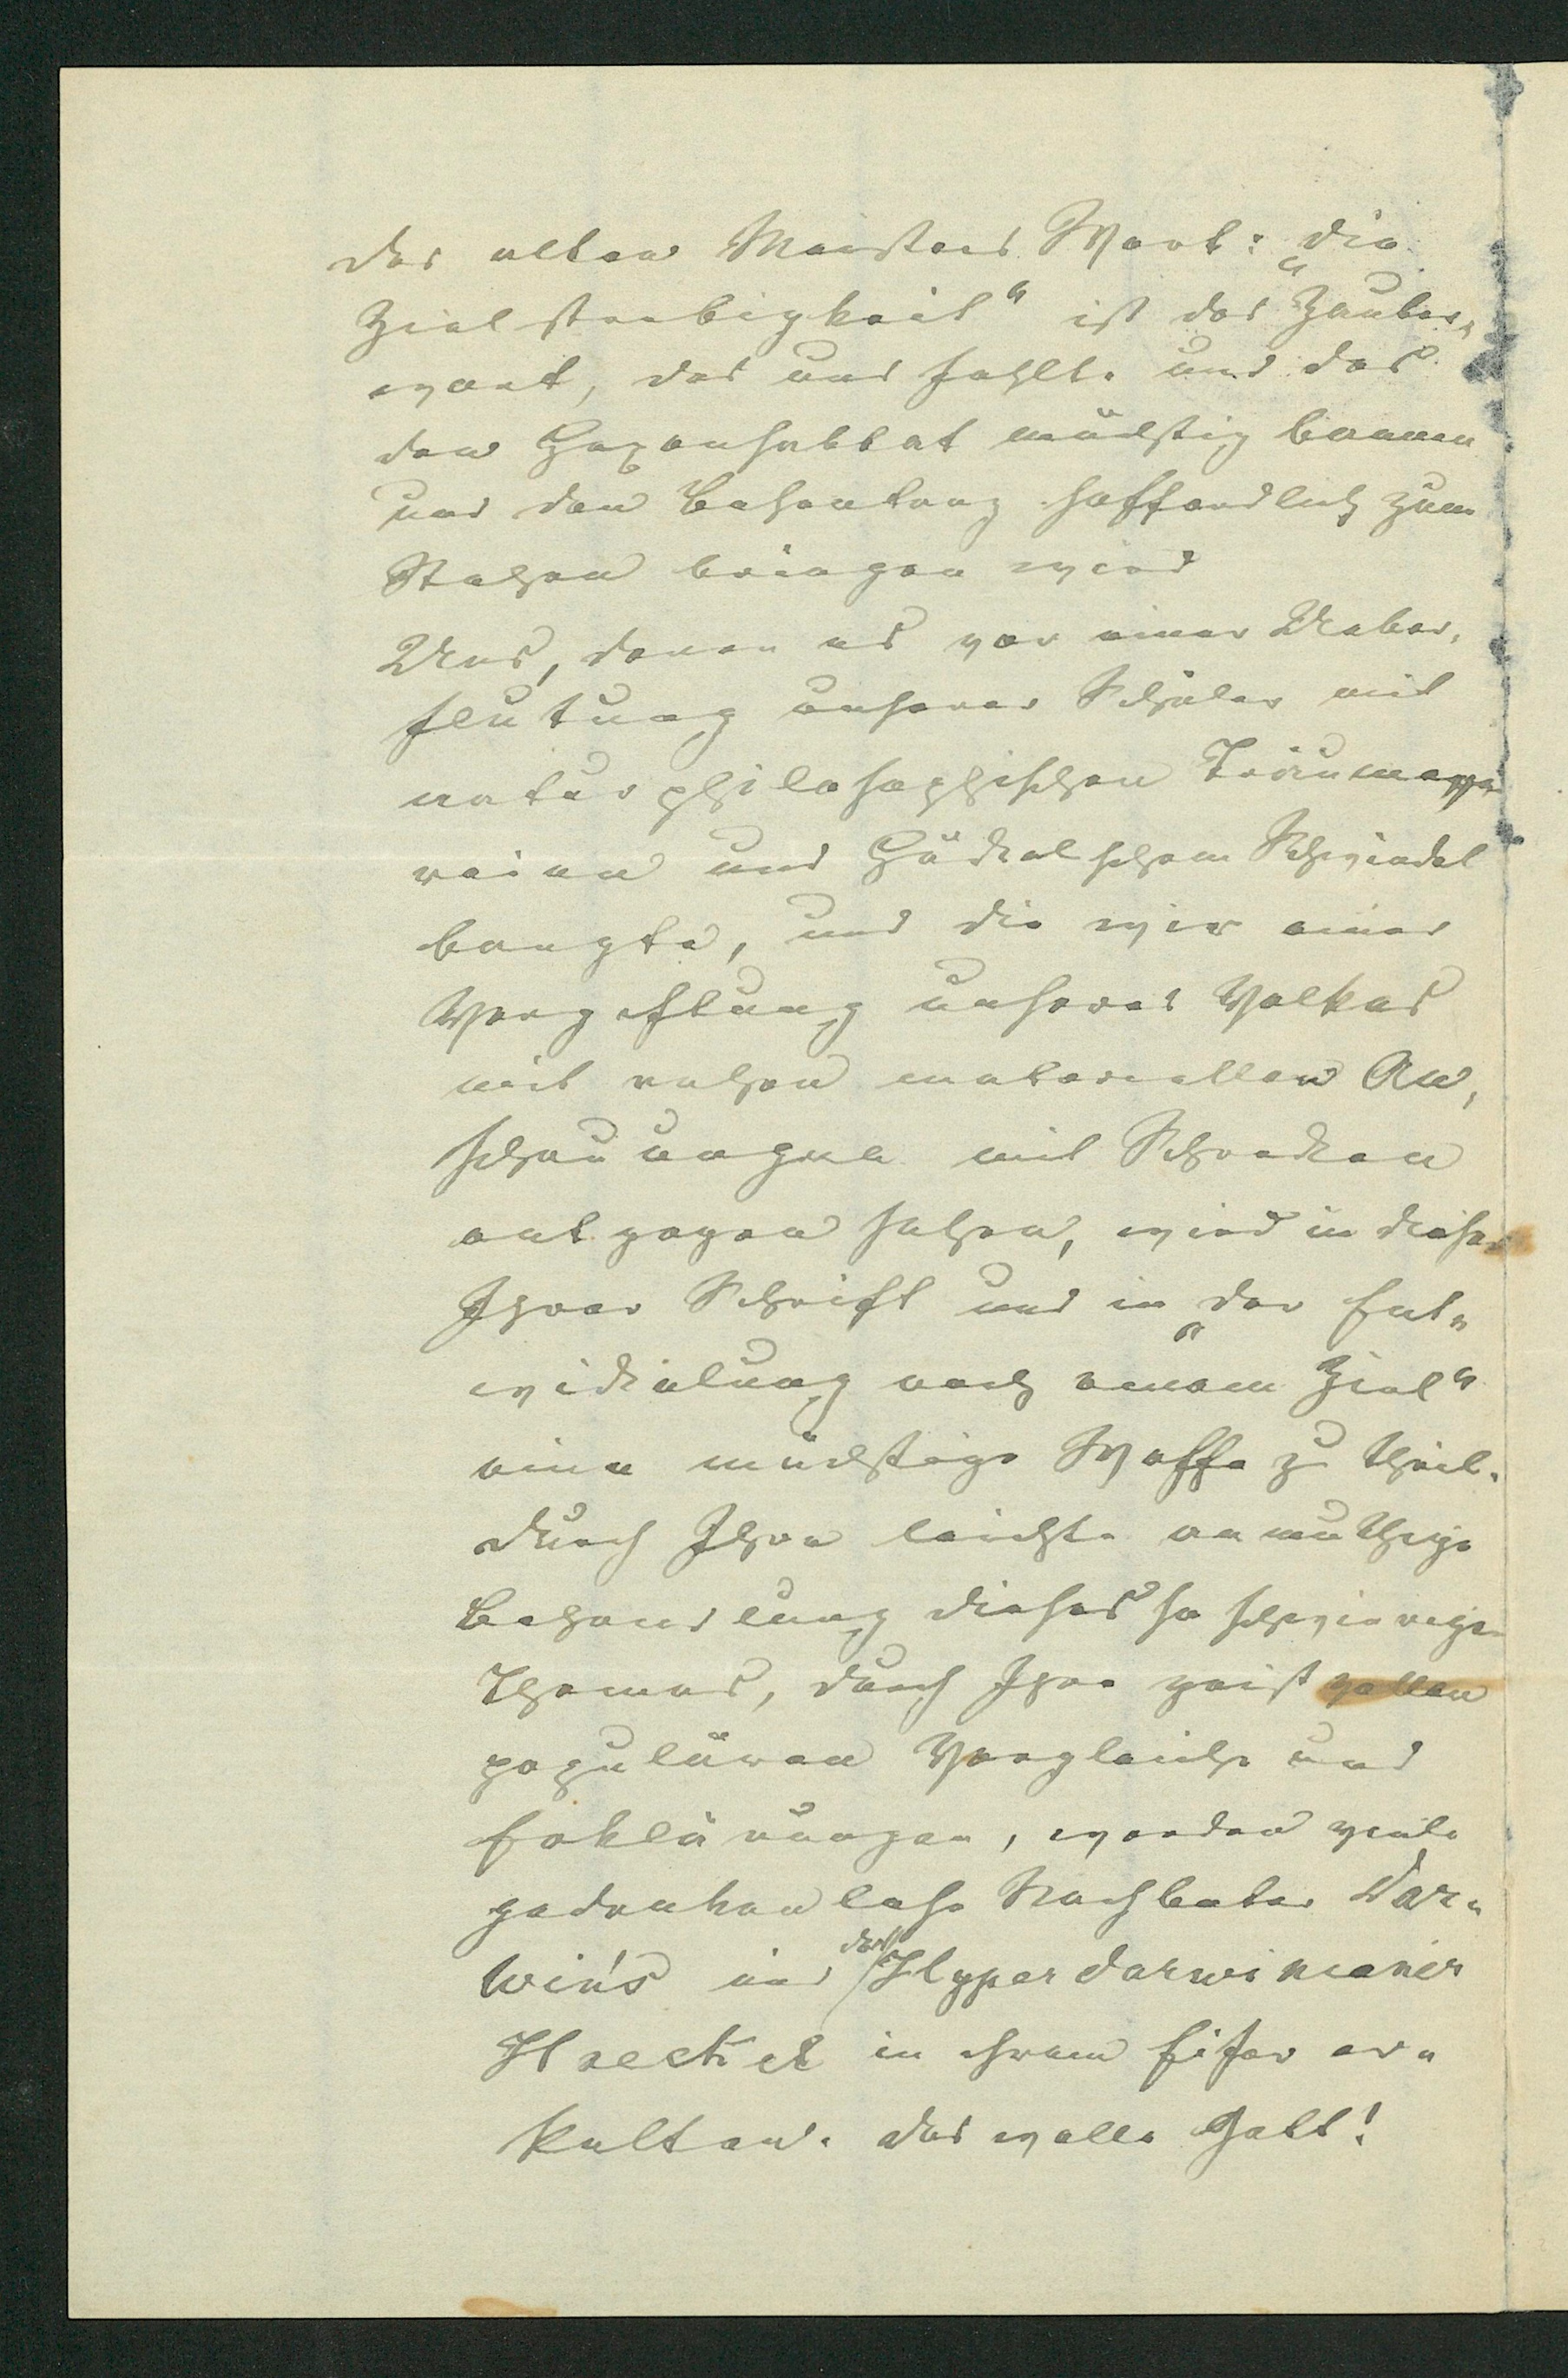 des alten Meisters Wort: „die
Zielstrebigkeit“ ist das Zauber„
wort, das uns fehlte und das
den Hexensabbat mächtig bannen
und den Besentanz hoffendlich zum
Stehen bringen wird
Uns, denen es vor einer Ueber„
flutung unserer Schüler mit
naturphilosophischen Träume
reien und Häckelschem Schwindel
bangte, und die wir einer
Vergiftung unseres Volkes
mit rohen materiellen An„
schauungen mit Schrecken
entgegen sehen, wird in dieser
Ihrer Schrift und in „der Ent„
wickelung nach einem Ziel“
eine mächtige Waffe zu theil.
Durch Ihre leichte anmuthige
Behandlung dieses so schwierigen
Themas, durch Ihre geistvollen
populären Vergleiche und
Erklärungen, werden viele
gedankenlose Nachbeter Dar„
win's und des Hyperdarwinianer
Haeckel in ihrem Eifer er„
kalten. Das walte Gott!